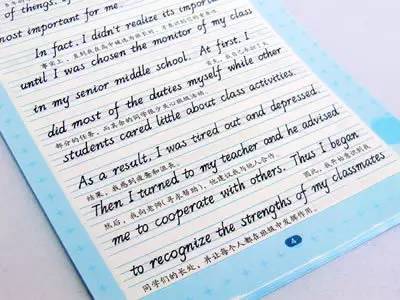 of things.
most important for me.
In fact, I didn't realize its important
事实上, 直到我在高中被选为班长时,
until I was chosen the monitor of my class
in my senior middle school. At first, I
did most of the duties myself while other
部分的任务, 而其余的同学很少关心班级活动。
students cared little about class activities.
As a result, I was tired out and depressed.
结果, 我感到疲惫和沮丧。
Then I turned to my teacher and he advised
然后, 我向老师寻求帮助, 他建议我与他人合作。
me to cooperate with others. Thus I began
因此, 我开始意识到我
to recognize the strengths of my classmates
同学们的长处, 并让每个人都在班级中发挥作用。
4